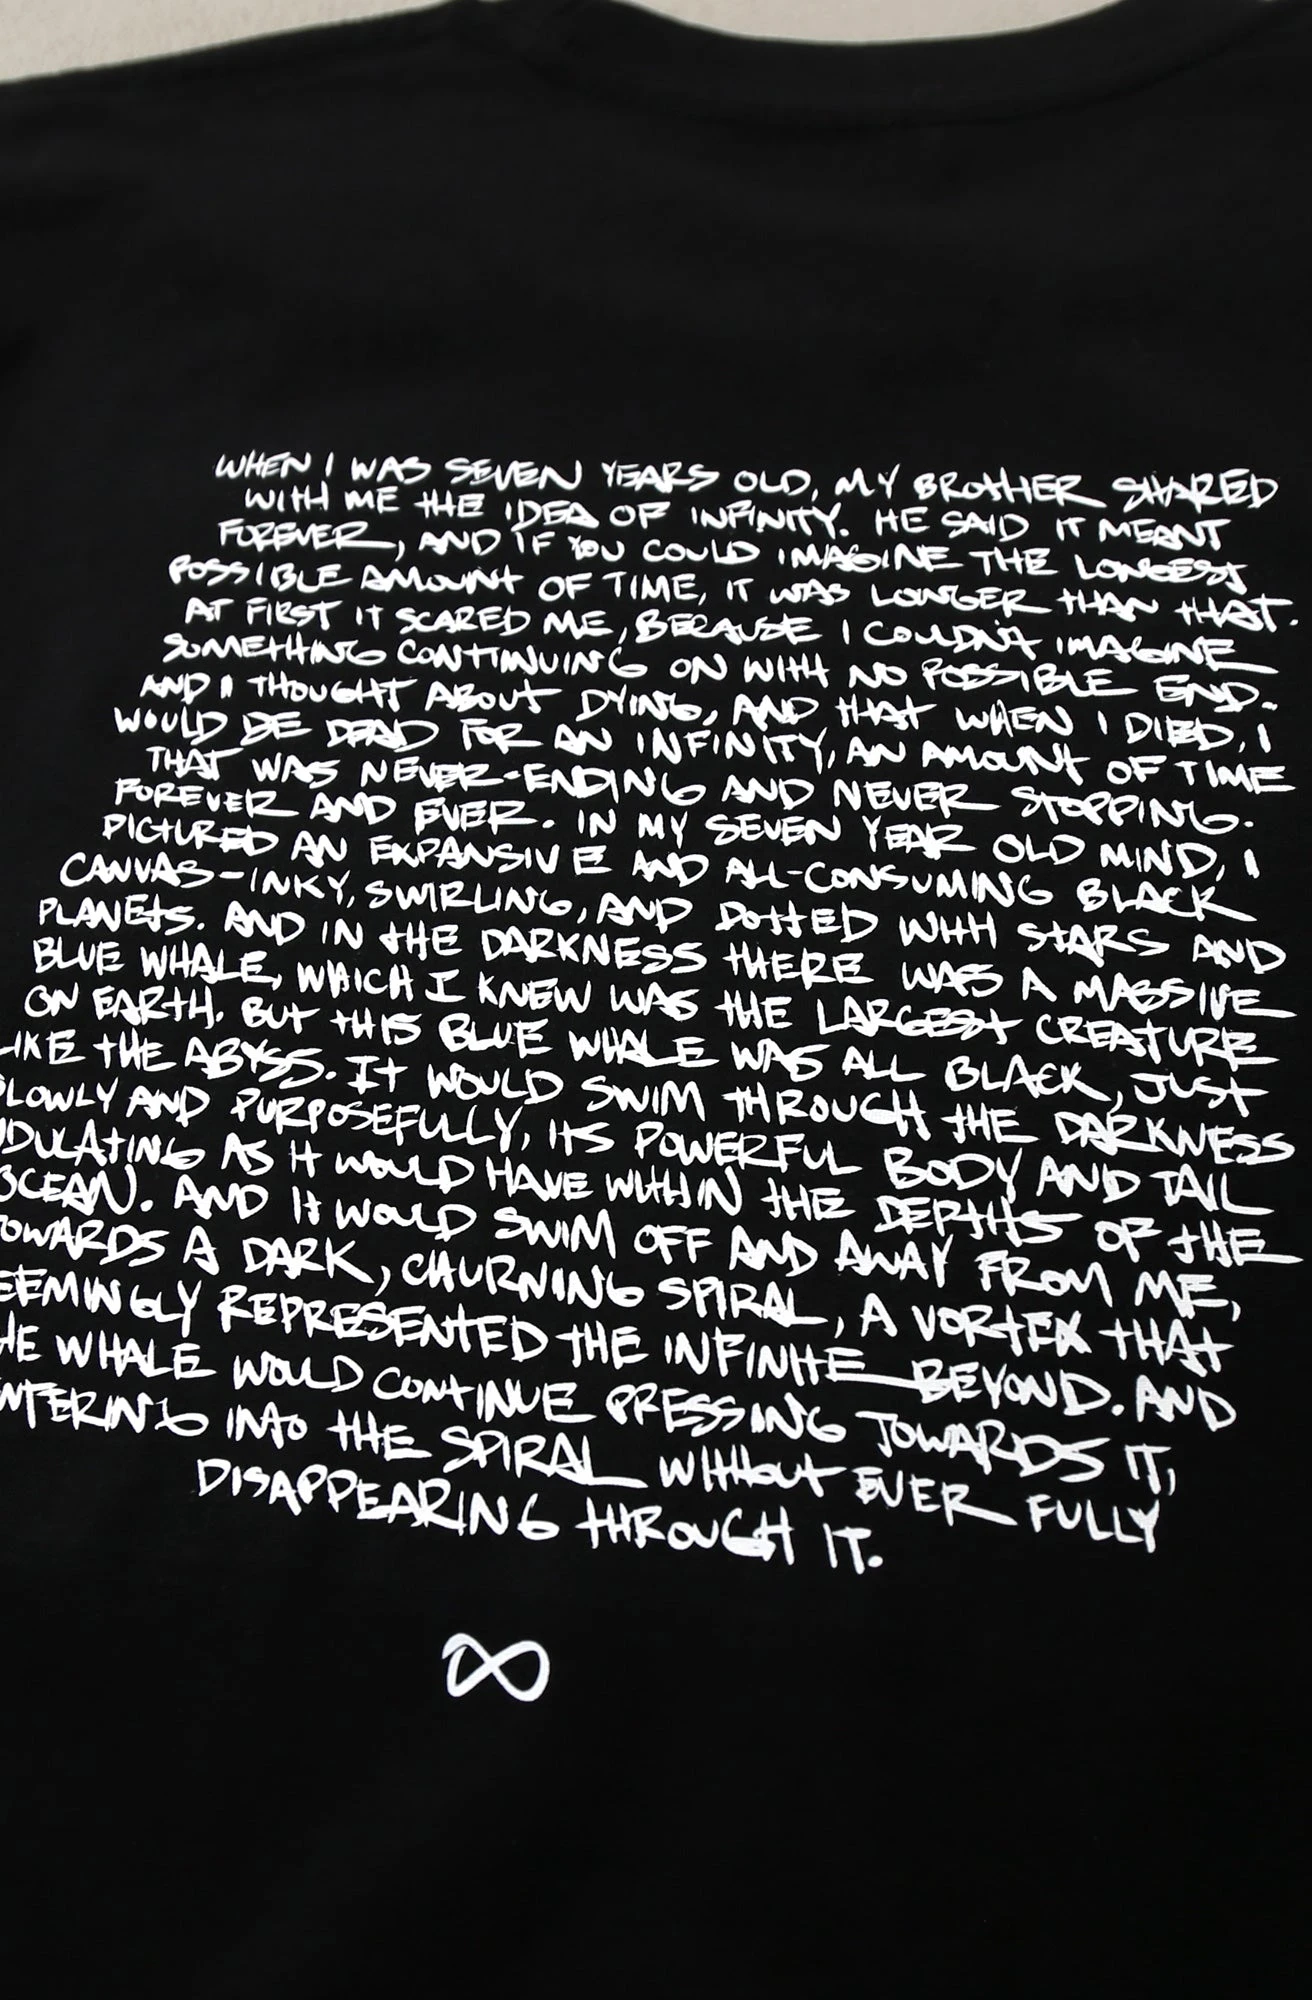 WHEN I WAS SEVEN YEARS OLD, MY BROTHER SHARED
WITH ME THE IDEA OF INFINITY. HE SAID IT MEANT
FOREVER, AND IF YOU COULD IMAGINE THE LONGEST
POSSIBLE AMOUNT OF TIME, IT WAS LONGER THAN THAT.
AT FIRST IT SCARED ME, BECAUSE I COULDN'T IMAGINE
SOMETHING CONTINUING ON WITH NO POSSIBLE END.
AND I THOUGHT ABOUT DYING, AND THAT WHEN I DIED, I
WOULD BE DEAD FOR AN INFINITY, AN AMOUNT OF TIME
THAT WAS NEVER-ENDING AND NEVER STOPPING.
FOREVER AND EVER. IN MY SEVEN YEAR OLD MIND, I
PICTURED AN EXPANSIVE AND ALL-CONSUMING BLACK
CANVAS-INKY, SWIRLING, AND DOTTED WITH STARS AND
PLANETS. AND IN THE DARKNESS THERE WAS A MASSIVE
BLUE WHALE, WHICH I KNEW WAS THE LARGEST CREATURE
ON EARTH. BUT THIS BLUE WHALE WAS ALL BLACK, JUST
LIKE THE ABYSS. IT WOULD SWIM THROUGH THE DARKNESS
SLOWLY AND PURPOSEFULLY, ITS POWERFUL BODY AND TAIL
UNDULATING AS IT WOULD HAVE WITHIN THE DEPTHS OF THE
OCEAN. AND IT WOULD SWIM OFF AND AWAY FROM ME,
TOWARDS A DARK, CHURNING SPIRAL, A VORTEX THAT
SEEMINGLY REPRESENTED THE INFINITE BEYOND. AND
THE WHALE WOULD CONTINUE PRESSING TOWARDS IT,
ENTERING INTO THE SPIRAL WITHOUT EVER FULLY
DISAPPEARING THROUGH IT.
∞